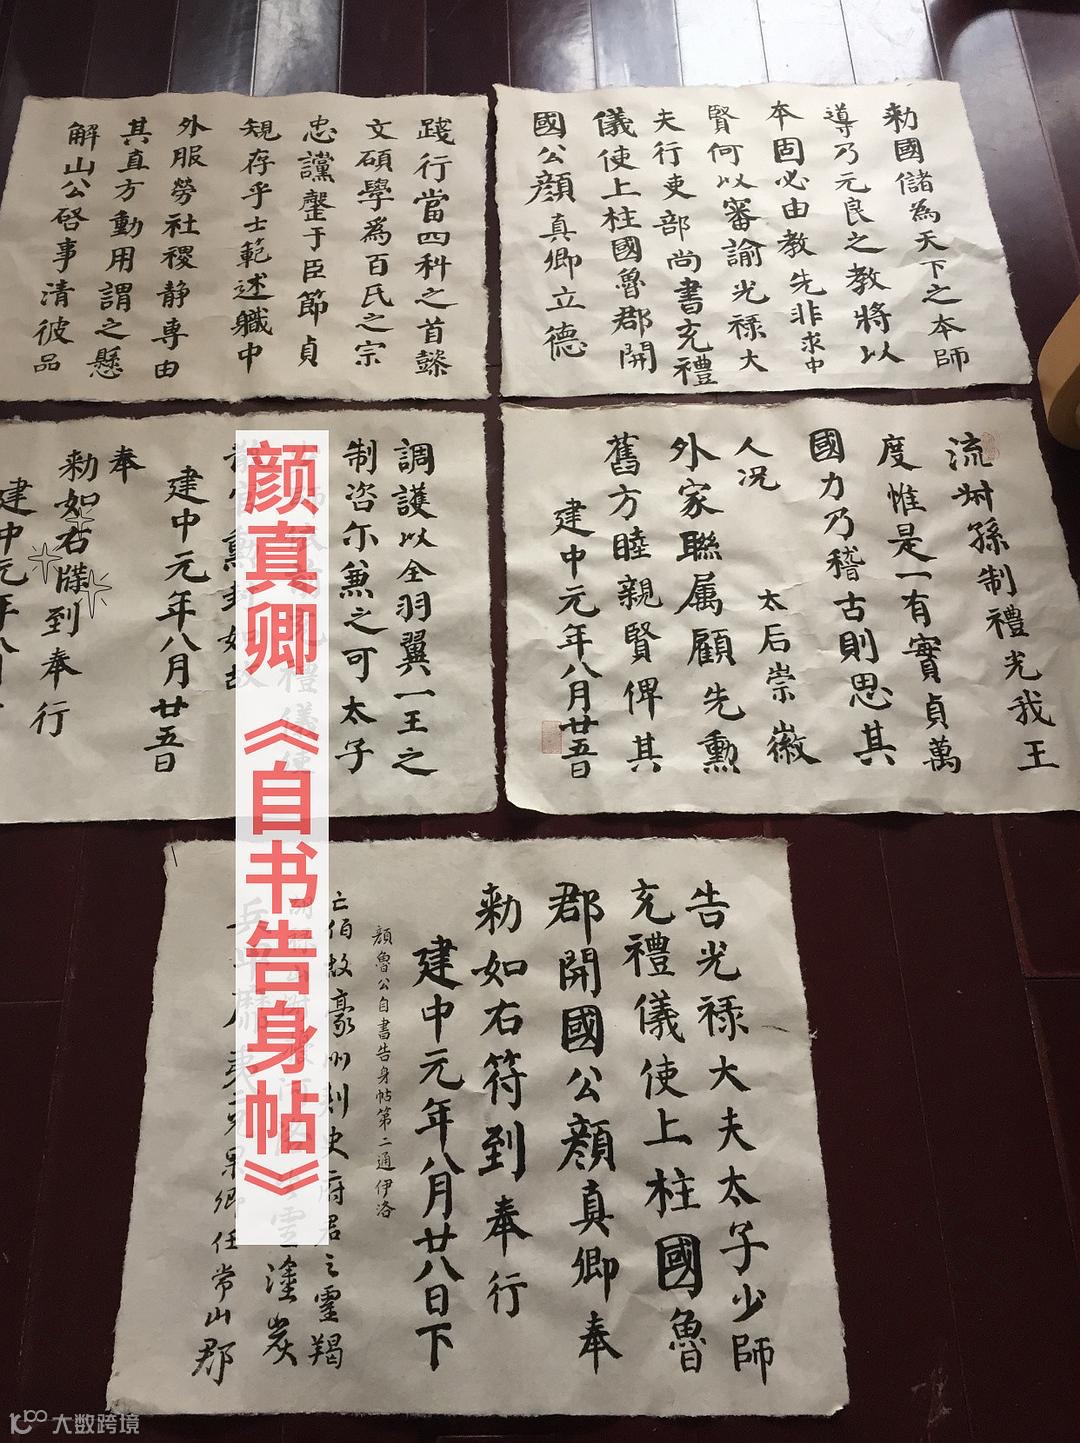 勅國儲為天下之本師
導乃元良之教將以
本固必由教先非求中
賢何以審諭光祿大
夫行吏部尚書充禮
儀使上柱國魯郡開
國公顏真卿立德
踐行當四科之首懿
文碩學為百氏之宗
忠讜罄于臣節貞
規存乎士範述職中
外服勞社稷静專由
其直方動用謂之懸
解山公啓事清彼品
流叔孫制禮光我王
度惟是一有實貞萬
國力乃稽古則思其
人况
太后崇徽
外家聯屬顧先勲
舊方睦親賢俾其
建中元年八月廿五日
調護以全羽翼一王之
制咨尓兼之可太子
建中元年八月廿五日
奉
勅如右牒到奉行
建中元年八月
告光祿大夫太子少師
充禮儀使上柱國魯
郡開國公顏真卿奉
勅如右符到奉行
建中元年八月廿八日下
顏魯公自書告身帖第二通伊洛
亡伯故豪州刺史府君之靈羯
塗炭
果卿任常山郡
颜真卿《自书告身帖》
大数跨境